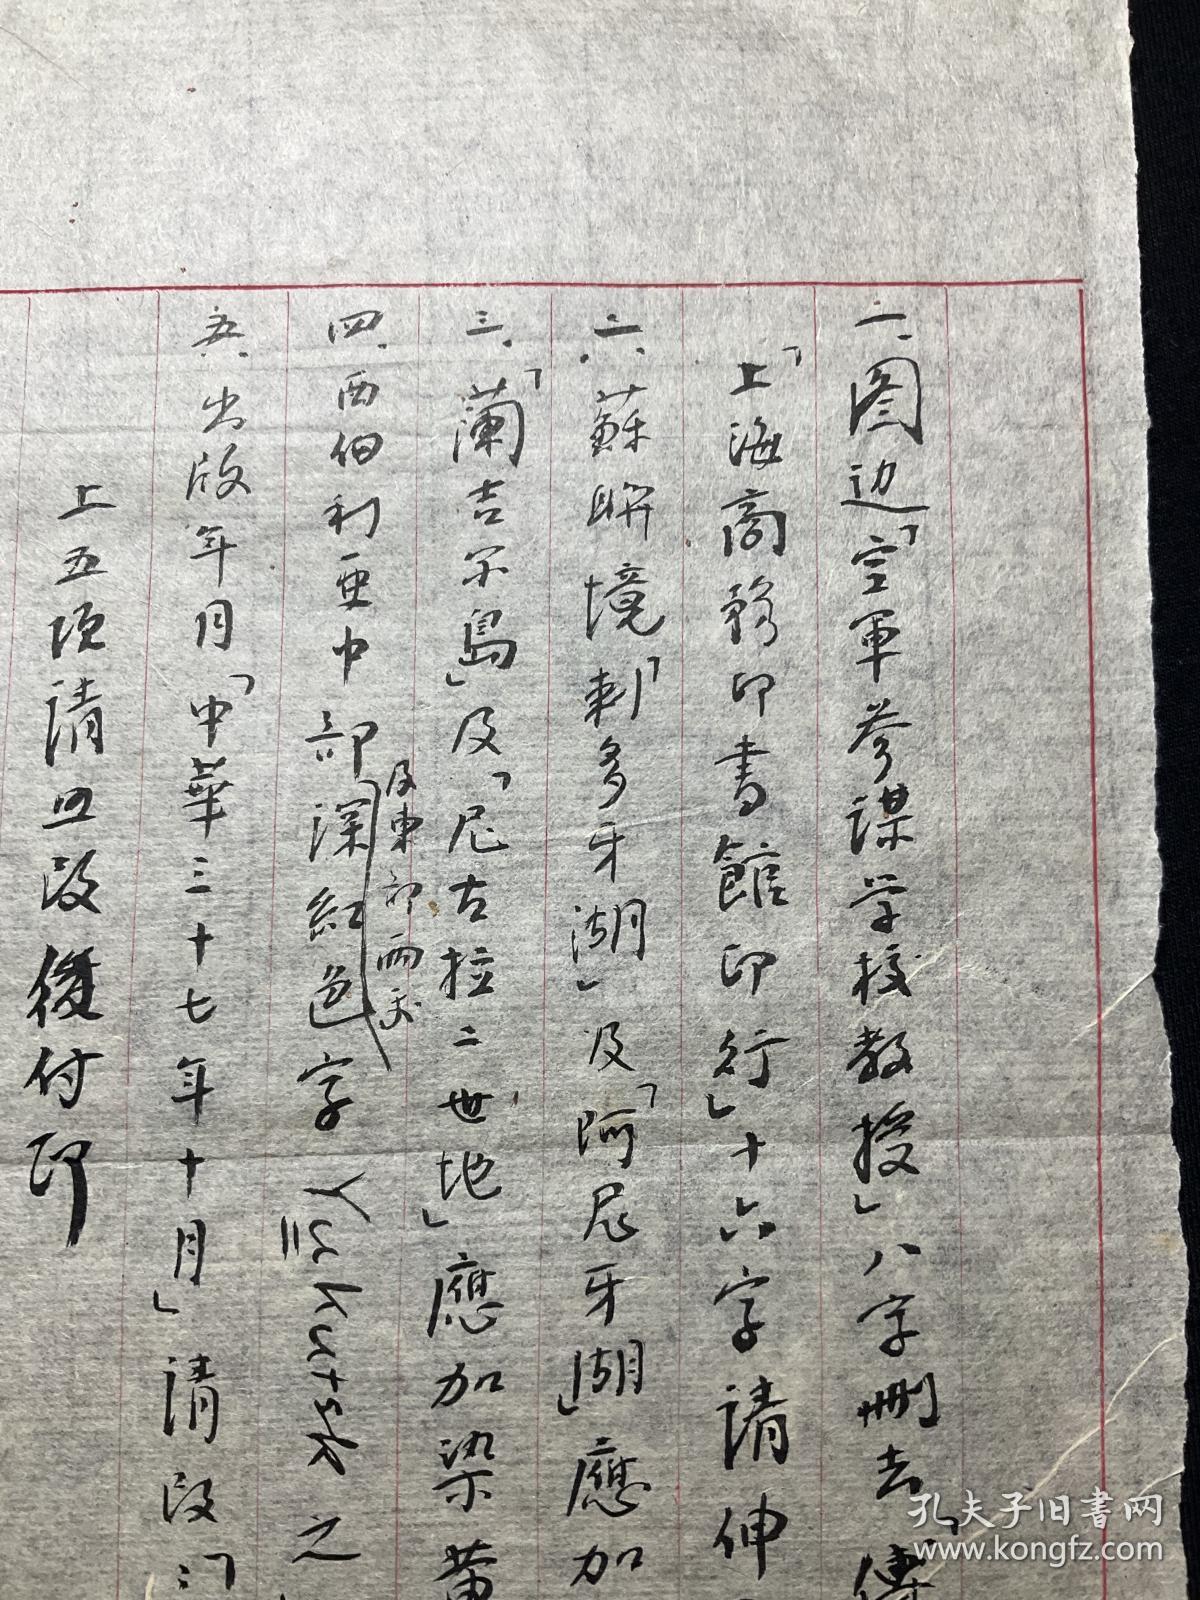 一、图边「空軍參謀学校教授」八字刪去「傅
「上海商務印書館印行」十六字請伸
二、蘇聯境「刺多牙湖」及「阿尼牙湖」應加
三、「蘭吉尔島」及「尼古拉二世地」應加染黄
四、西伯利亚中部及東部兩天深紅色字 Yakutsk 之
五、出版年月「中華三十七年十月」請改
上五項請照改後付印
孔夫子旧书网
www.kongfz.com